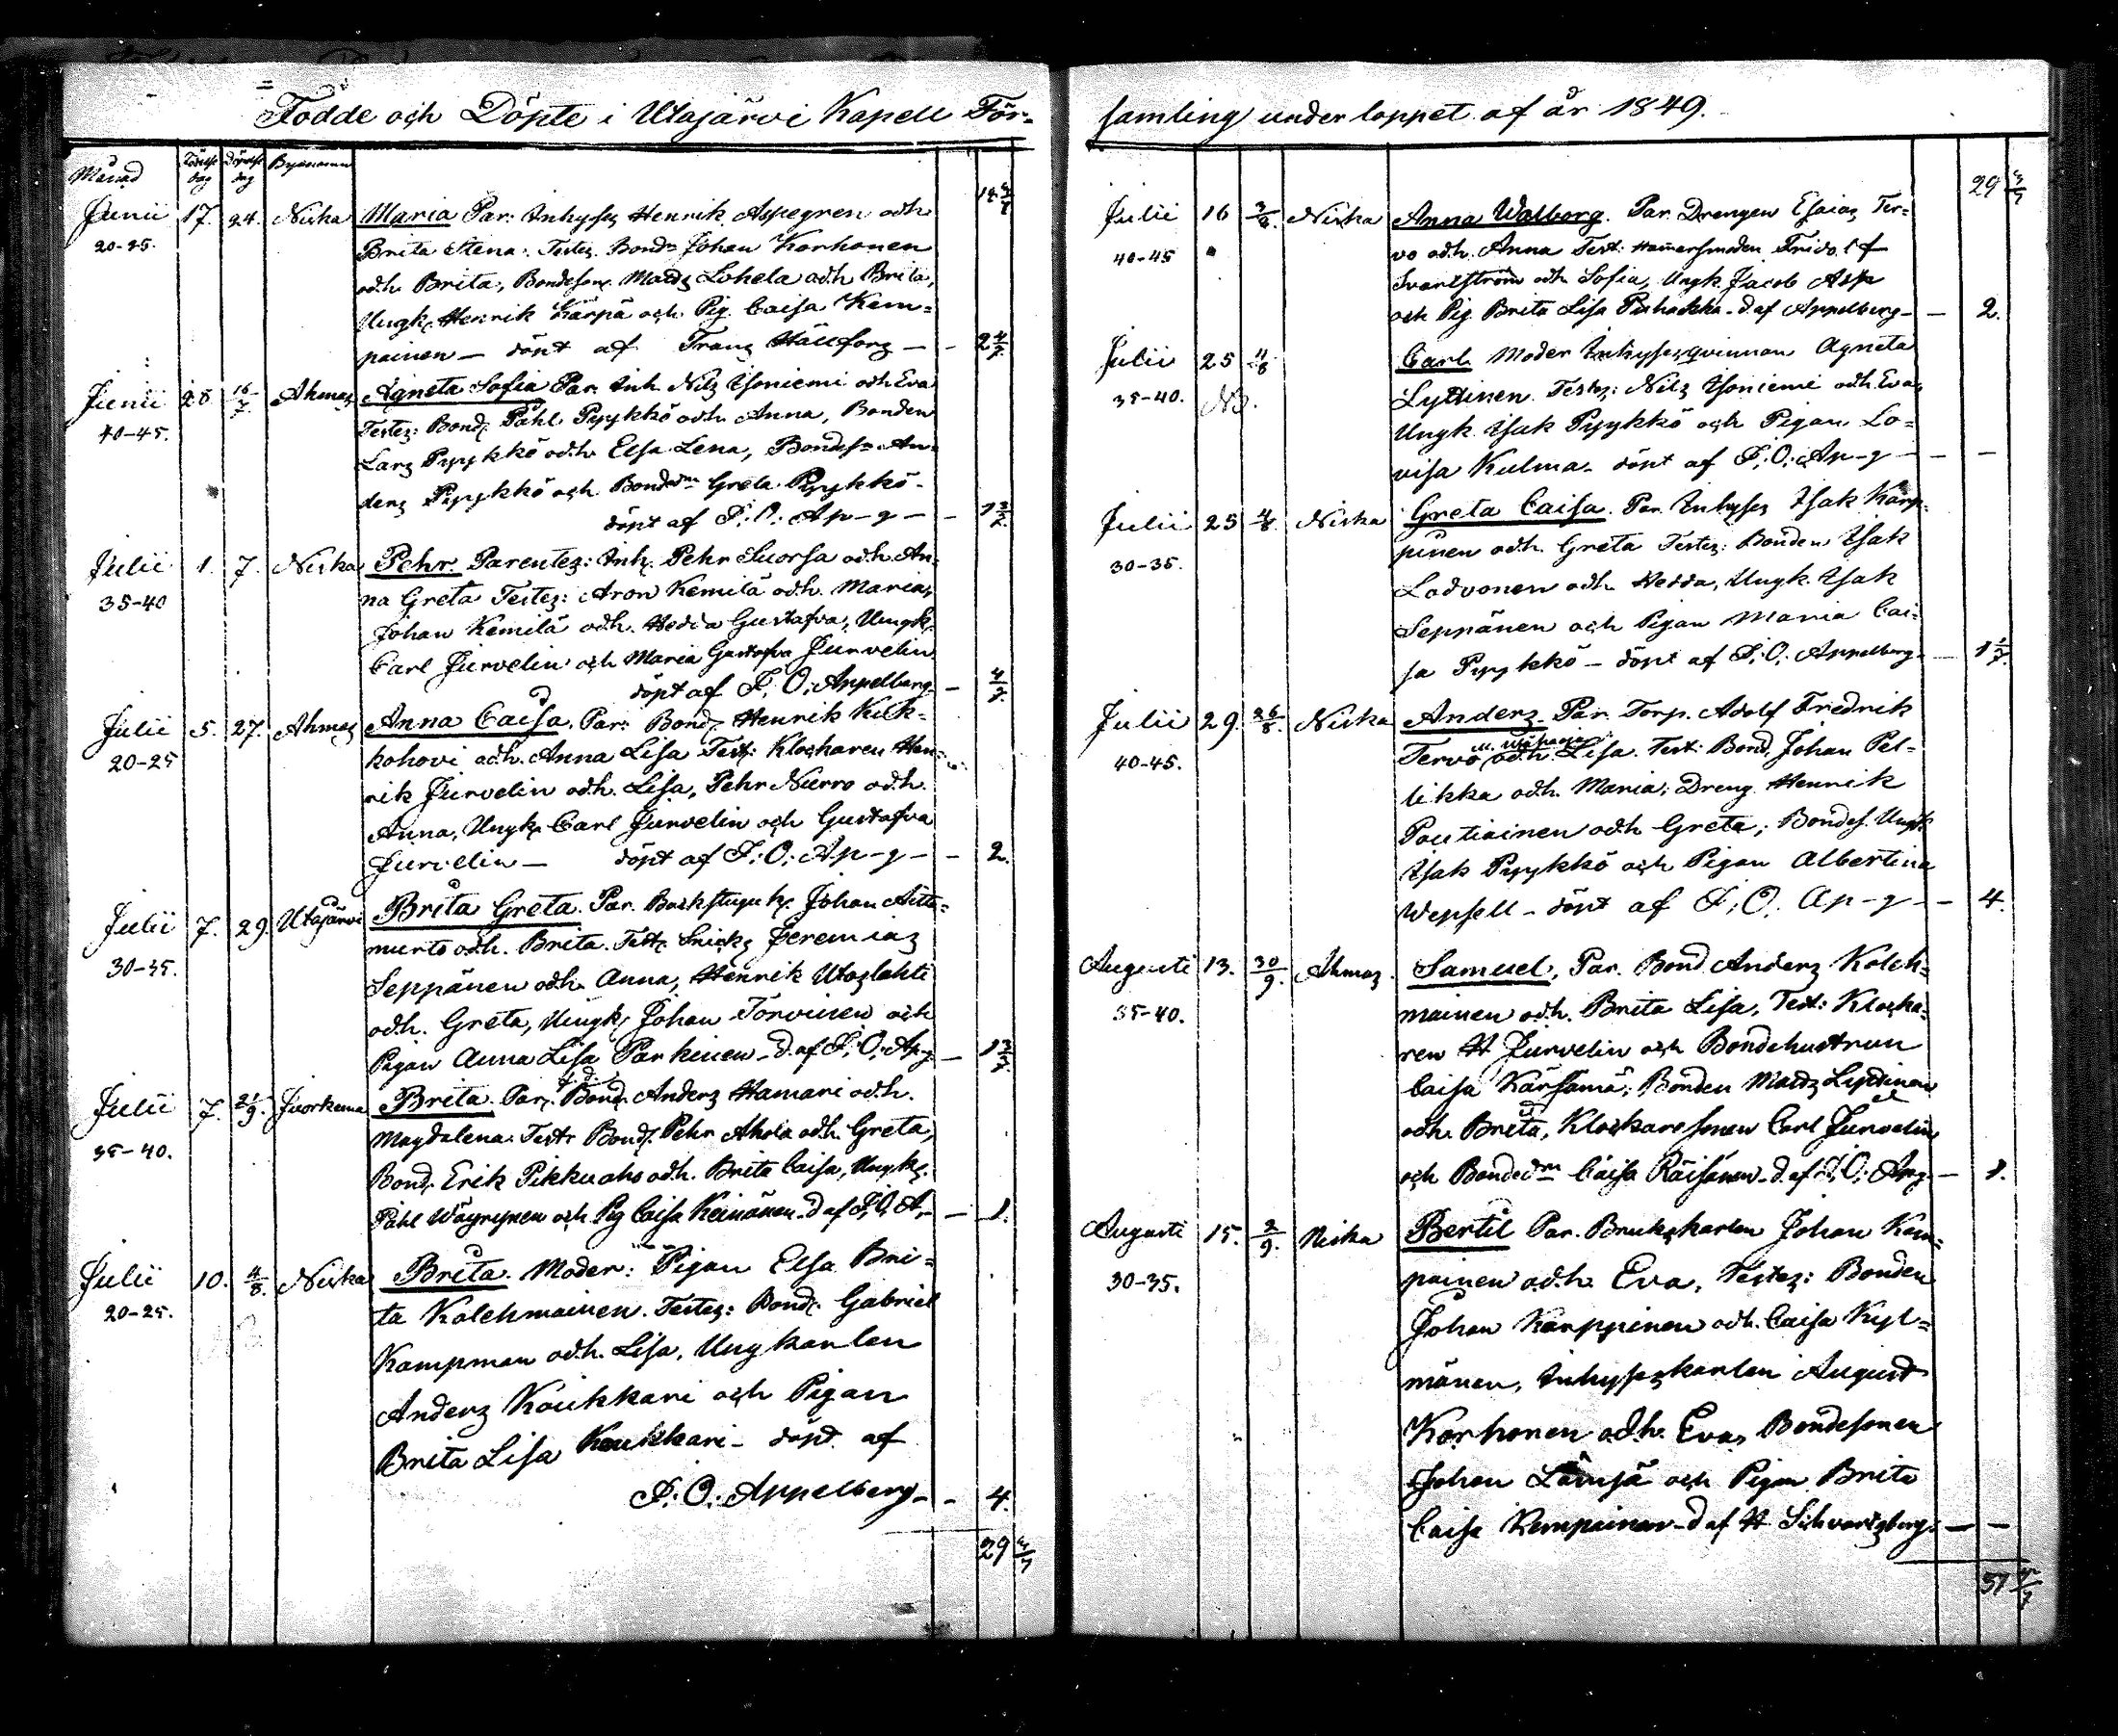 Födde och Döpte i Utajärvi Kapell För-
Månad Födelse dag Döpelse dag Bynamn
Junii 17. 24. Niska Maria Par: Inhyses Henrik Aspegren och
20-25. Brita Stena: Testes. Bond. Johan Korhonen
odh. Brita, Bondeson Matds Lohela odh Brita,
Ungk. Henrik Kärpä och Pig. Caisa Kem=
painen — döpt af Franz Hällfors — - 2 4/7
Junii 28 16/7 Ahmas Agneta Sofia Par. Inh. Nils Isoniemi odh Eva
40-45. Testes: Bond. Påhl Pyykkö odh Anna, Bonden
Lars Pyykkö odh Elsa Lena, Bondes. An-
ders Pyykkö och Bondedr Greta Pyykkö -
döpt af F: O: Ap-g - -
Julii 1. 7. Niska Pehr. Parentes: Inh. Pehr Suorsa odh. An-
35-40 na Greta Testes: Aron Kemilä odh. Maria,
Johan Kemilä odh. Hedda Gustafva, Ungk.
Carl Jurvelin och Maria Gustafva Jurvelin
döpt af F. O: Appelberg - 4/7
Julii 5. 27. Ahmas Anna Caisa. Par: Bond. Henrik Kuk=
20-25 kohovi odh. Anna Lisa Test: Klockaren Hen=
rik Jurvelin odh. Lisa, Pehr Nurro odh.
Anna, Ungk. Carl Jurvelin och Gustafva
Jurvelin — döpt af F: O: Ap-g - - 2.
Julii 7. 29. Utajärvi Brita Greta. Par. Backstuguk. Johan Aitta=
30-35. murto odh. Brita. Test. Snick. Jeremias
Seppänen odh. Anna, Henrik Utoslahti
odh. Greta, Ungk. Johan Törvinen och
Pigan Anna Lisa Parkinen - d. af F: O: Ap-g —
Julii 7. 21/9. Juorkuna Brita. Par. Bond. Anders Hamari odh.
35-40. Magdalena. Test: Bond. Pehr Ahola odh. Greta,
Bond. Erik Pikkuaho odh. Brita Caisa, Ungk.
Påhl Wäyrynen och Pig Caisa Keinänen - d af F: O: A- — 1.
Julii 10. 4/8. Niska Brita. Moder: Pigan Elsa Bri=
20-25. ta Kolehmainen. Testes: Bond. Gabriel
Kampman odh. Lisa, Ungkarlen
Anders Koukkari och Pigan
Brita Lisa Koukkari - döpt af
F: O: Appelberg - - 4.
29 3/7
samling under loppet af år 1849.
29 3/7
Julii 16 3/8. Niska Anna Walborg. Par. Drengen Esaias Ter=
40-45 vo odh. Anna Test: Hammarsmeden Fridolf
Svartström odh Sofia, Ungk. Jacob Asp
och Pig. Brita Lisa Puhakka - d. af Appelberg - — 2.
Julii 25 Carl Moder Inhyses qvinnan Agneta
35-40. Lyttinen. Testes: Nils Isoniemi odh. Eva,
Ungk. Isak Pyykkö och Pigan Lo=
visa Kulma - döpt af F: O: Ap-g - - -
Julii 25 4/8. Niska Greta Caisa. Par. Inhyses Isak Kärp-
30-35. pinen odh. Greta Testes: Bonden Isak
Lodvonen odh. Hedda, Ungk. Isak
Seppänen och Pigan Maria Cai=
sa Pyykkö - döpt af F: O: Appelberg - — 1 1/7.
Julii 29. 26/8. Niska Anders. Par. Torp. Adolf Fredrik
40-45. Tervo odh. Lisa. Test: Bond. Johan Pel=
likka odh. Maria; Dreng. Henrik
Poutiainen odh Greta; Bondes. Ungk.
Isak Pyykkö och Pigan Albertina
Wepsell - döpt af F: O. Ap-g - - 4.
Augusti 13. 30/9. Ahmas. Samuel, Par. Bond. Anders Koleh=
35-40. mainen odh. Brita Lisa, Test: Klocka=
ren H Jurvelin och Bondehustrun
Caisa Kärsämä; Bonden Matds Lyttinen
odh. Brita, Klockaresonen Carl Jurvelin
och Bondedr Caisa Räisänen - d. af F: O: Apg - — 1.
Augusti 15. 2/9. Niska Bertil Par. Brukskarlen Johan Kem=
30-35. painen odh. Eva, Testes: Bonden
Johan Karppinen odh. Caisa Kyl=
mänen, Inhyseskarlen August
Korhonen odh. Eva, Bondesonen
Johan Lämsä och Pigan Brita
Caisa Kempainen - d af H. Schvartzberg - — —
37 4/7